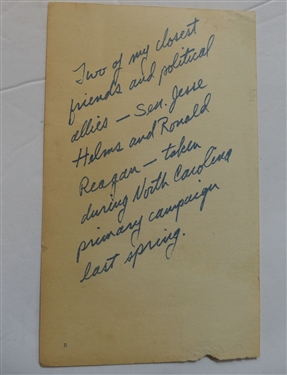 Two of my closest
friends and political
allies — Sen. Jesse
Helms and Ronald
Reagan — taken
during North Carolina
primary campaign
last spring.